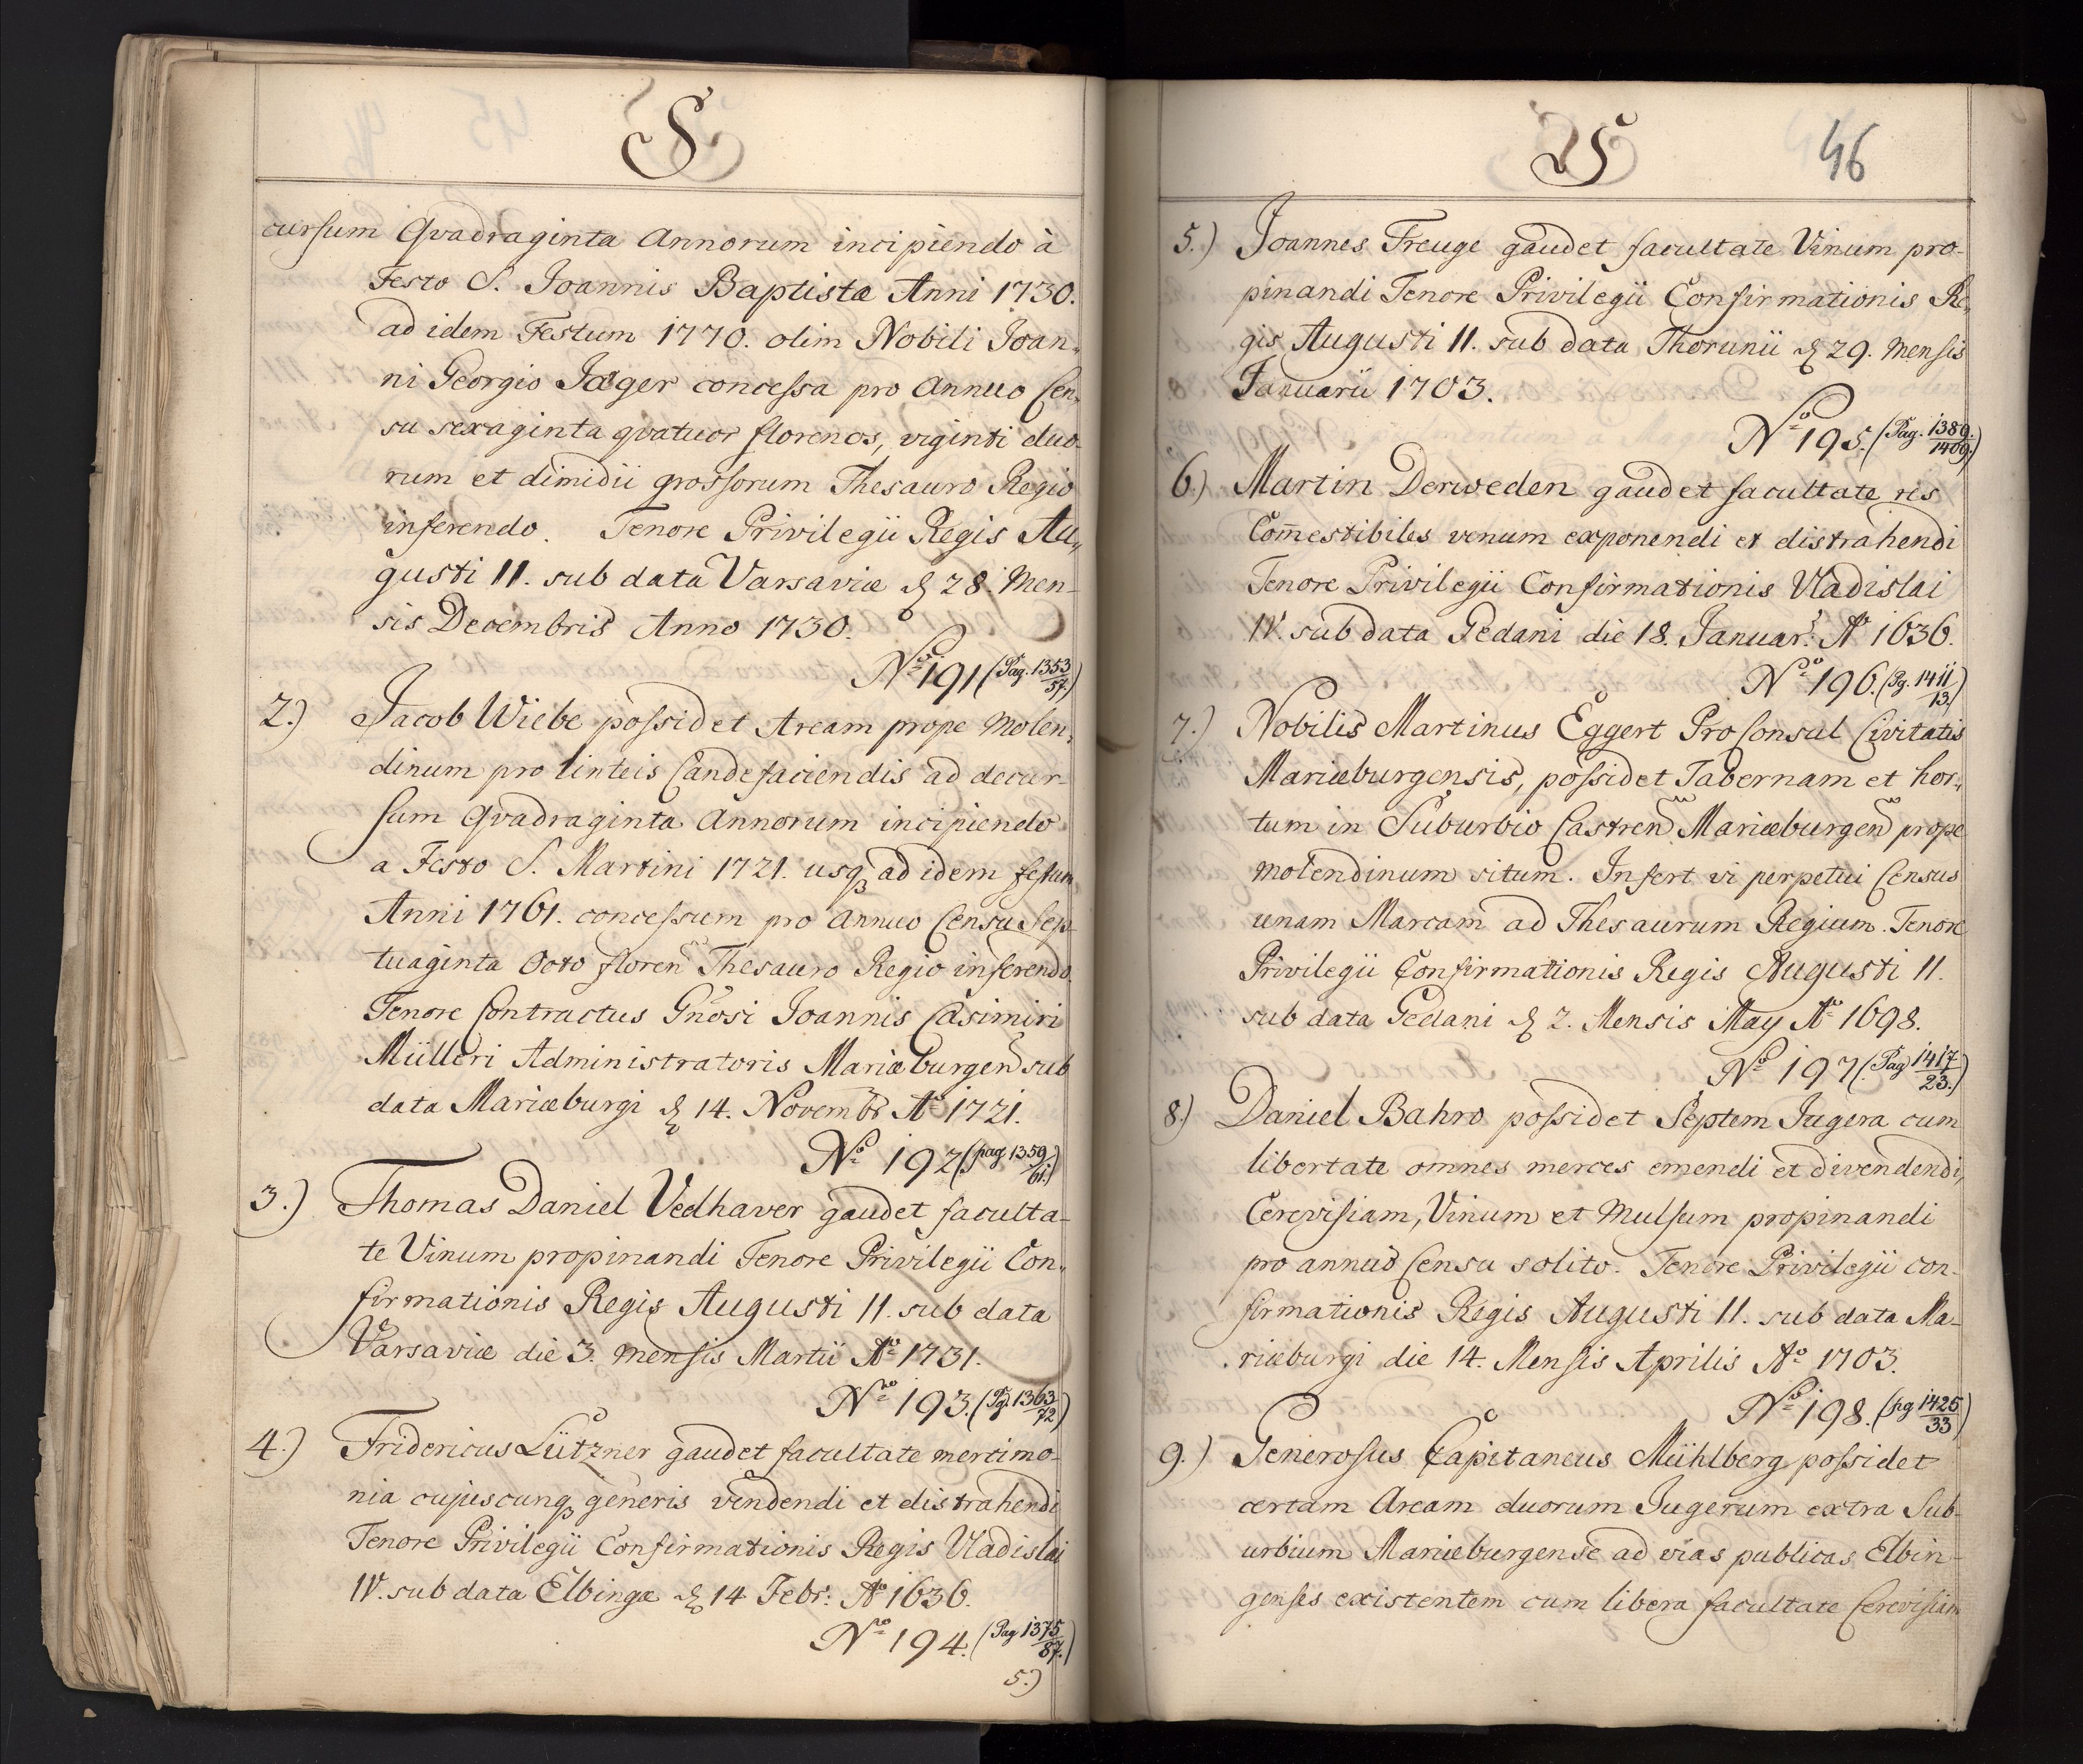 S
cursum Qvadraginta Annorum incipiendo à
Festo S. Joannis Baptistæ Anni 1730.
ad idem Festum 1770. olim Nobili Joan„
ni Georgio Jæger concessa pro Annuo Cen„
su sexaginta qvatuor florenos, viginti duo„
rum et dimidii grossorum Thesauro Regio
inferendo. Tenore Privilegii Regis Au„
gusti II. sub data Varsaviæ d 28. Men-
sis Decembris Anno 1730.
Nro 191 (Pag. 1353/57.)
2.) Jacob Wiebe possidet Aream prope Molen„
dinum pro linteis Candefaciendis ad decur-
sum Qvadraginta Annorum incipiendo
a Festo S. Martini 1721. usq ad idem festum
Anni 1761. concessum pro Annuo Censu Sep-
tuaginta Octo floren Thesauro Regio inferendo.
Tenore Contractus Gnosi Joannis Casimiri
Mülleri Administratoris Mariæburgen sub
data Mariæburgi d 14. Novembr Ao 1721.
No 192 (pag 1359/61.)
3.) Thomas Daniel Vedhaver gaudet faculta-
te Vinum propinandi Tenore Privilegii Con„
firmationis Regis Augusti II. sub data
Varsaviæ die 3. mensis Martii Ao 1731.
Nro 193. (Pg. 1363/72)
4.) Fridericus Lützner gaudet facultate mercimo-
nia cujuscunq generis vendendi et distrahendi
Tenore Privilegii Confirmationis Regis Uladislai
IV. sub data Elbingæ d 14 Febr: Ao 1636.
Nro 194. (Pag 1375/87.)
5.)
S 46
5.) Joannes Freuge gaudet facultate Vinum pro-
pinandi Tenore Privilegii Confirmationis Re„
gis Augusti II. sub data Thorunii d 29. Mensis
Januarii 1703.
No 195. (Pag. 1389./1409.)
6.) Martin Derweden gaudet facultate res
Com̄estibiles venum exponendi et distrahendi
Tenore Privilegii Confirmationis Uladislai
IV. sub data Gedani die 18. Januar: Ao 1636.
No 196. (Pg. 1411/13.)
7.) Nobilis Martinus Eggert Pro Consul Civitatis
Mariæburgensis, possidet Tabernam et hor„
tum in Suburbio Castren Mariæburgen prope
molendinum situm. Infert vi perpetui Census
unam Marcam ad Thesaurum Regium. Tenore
Privilegii Confirmationis Regis Augusti II.
sub data Gedani d 2. Mensis May Ao 1698.
No 197 (Pag 1417/23.)
8.) Daniel Bahro possidet Septem Jugera cum
libertate omnes merces emendi et divendendi,
Cerevisiam, Vinum et Mulsum propinandi
pro annuo Censu solito. Tenore Privilegii con-
firmationis Regis Augusti II. sub data Ma-
riæburgi die 14. Mensis Aprilis Ao 1703.
No 198. (pg 1425/33)
9.) Generosus Capitaneus Mühlberg possidet
certam Aream duorum Jugerum extra Sub-
urbium Mariæburgense ad vias publicas Elbin-
genses existentem cum libera facultate Cerevisiam